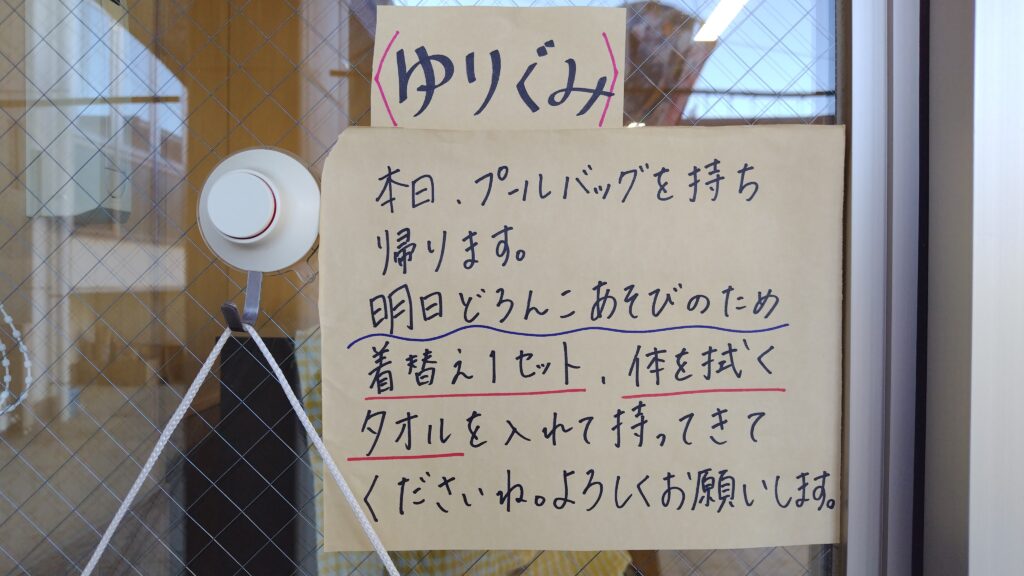 〈ゆりぐみ〉
本日、プールバッグを持ち
帰ります。
明日どろんこあそびのため
着替え1セット、体を拭く
タオルを入れて持ってきて
くださいね。よろしくお願いします。